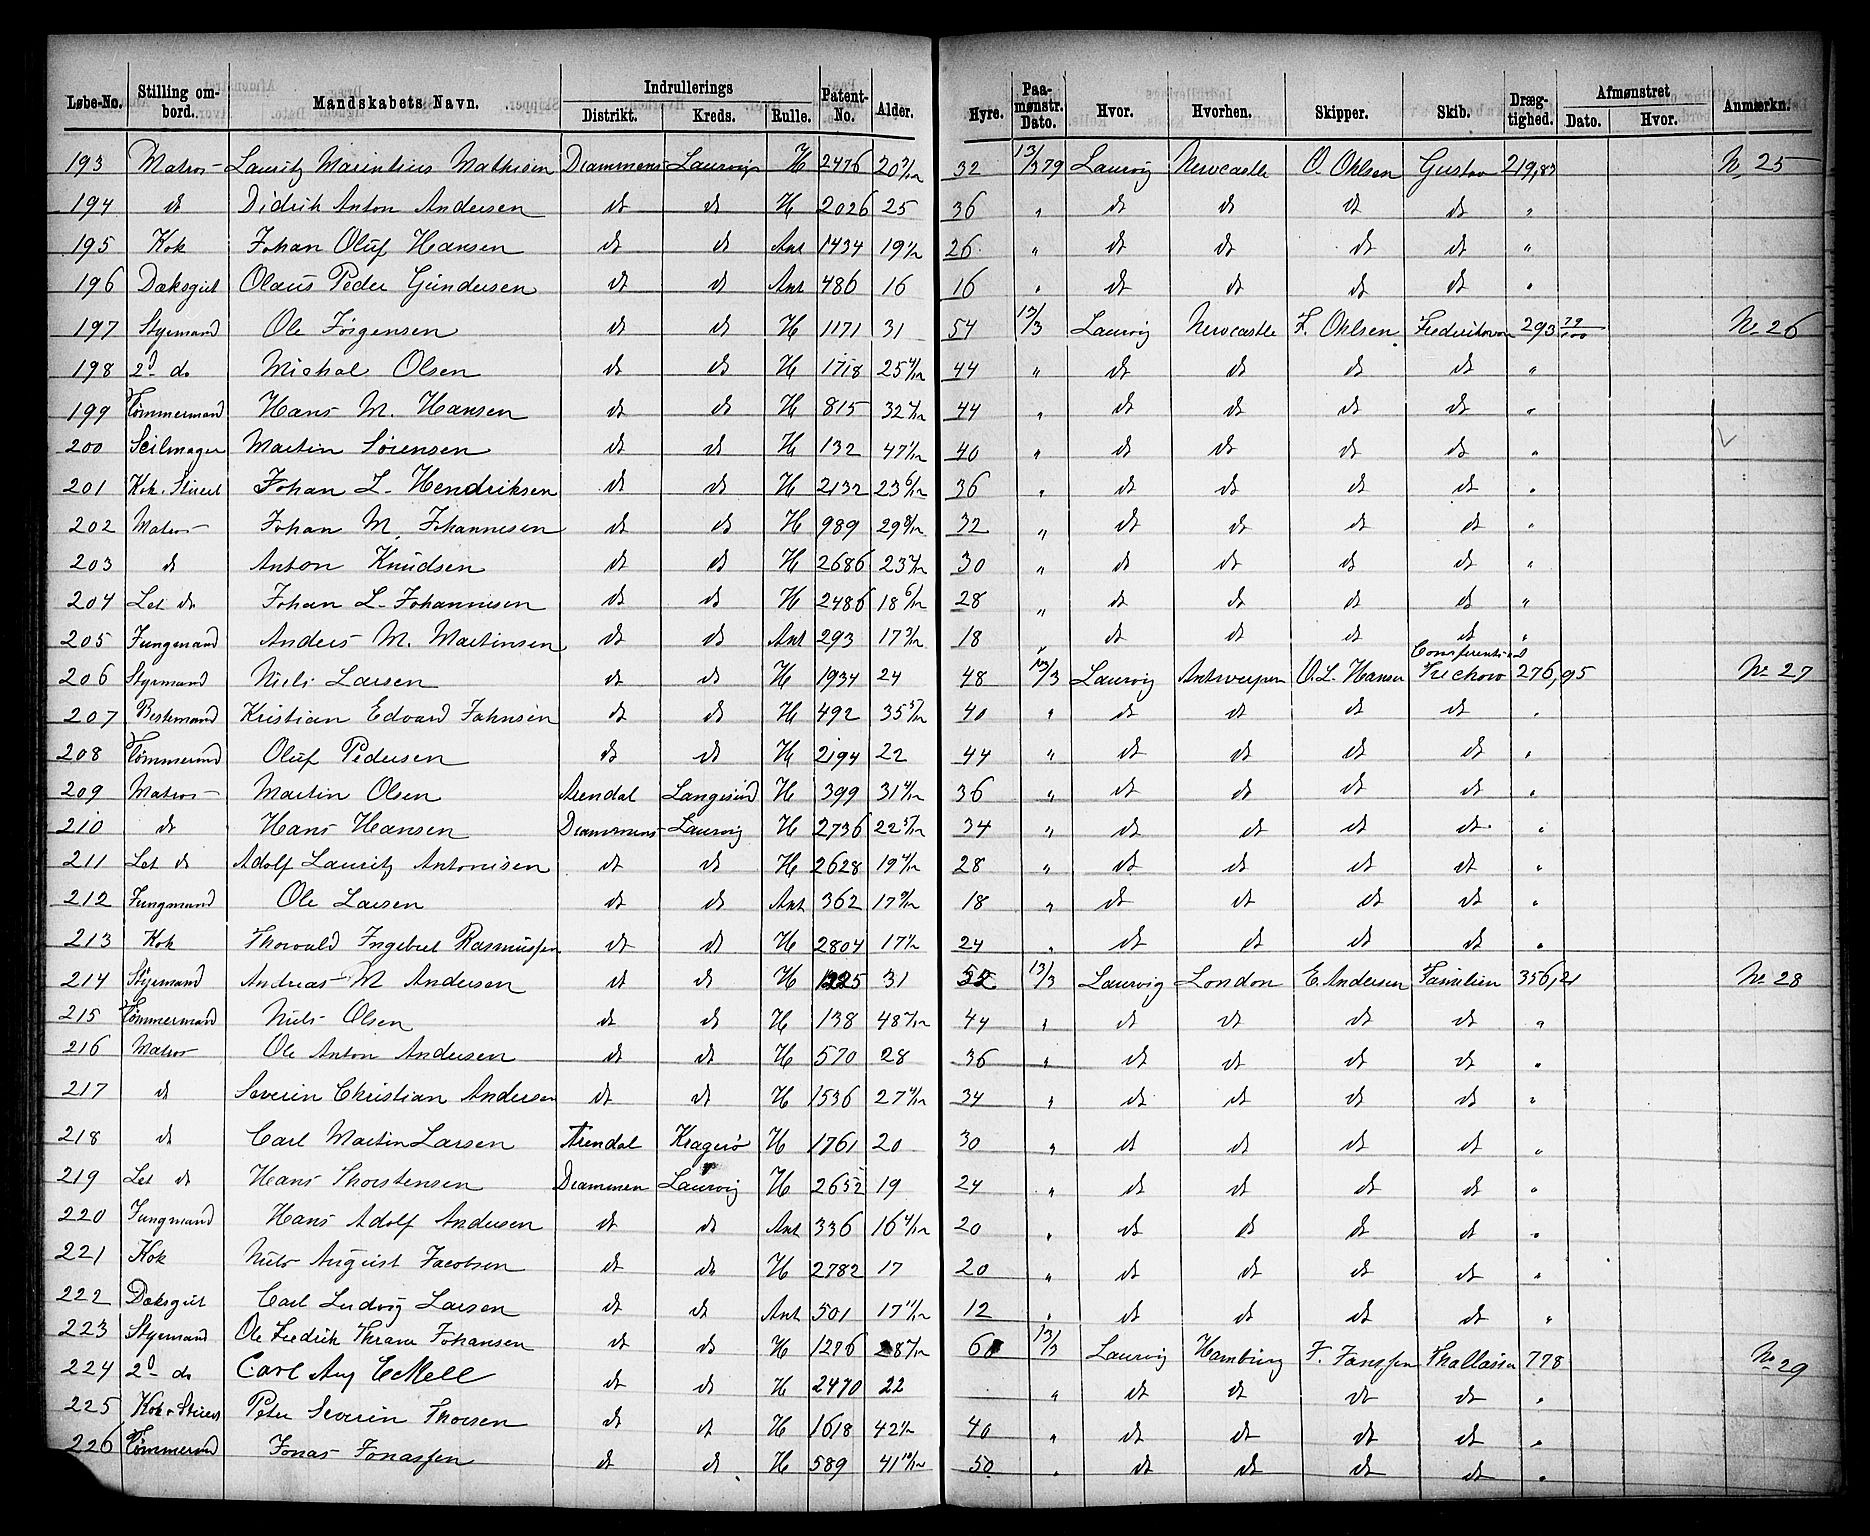 Løbe-No. Stilling ombord. Mandskabets Navn. Indrullerings Distrikt. Kreds. Rulle. Patent-No. Alder. Hyre. Paamønstr. Dato. Hvor. Hvorhen. Skipper. Skib. Drægtighed. Afmønstret Dato. Hvor. Anmærkn.
193 Matros Lauritz Marintius Mathisen Drammens Laurvigs H 2476 32 13/3 79 Laurvig Newcastle O. Ohlsen Gustav 219,83 No 25
194 dt Didrik Anton Andersen dt dt H 2026 25 36 " dt dt dt dt "
195 Kok Johan Oluf Hansen dt dt Ant 1434 26 " dt dt dt dt "
196 Dæksgut Olaus Peder Gundersen dt dt Ant 486 16 16 " dt dt dt dt "
197 Styrmand Ole Jörgensen dt dt H 1171 31 54 13/3 Laurvig Newcastle F. Ohlsen 293 79/100 No 26
198 2d do Michal Olsen dt dt H 1718 25 4/12 44 " dt dt dt dt "
199 Tömmermand Hans M. Hansen dt dt H 815 44 " dt dt dt dt "
200 Seilmager Martin Sörensen dt dt H 132 40 " dt dt dt dt "
201 Kok. Stuert Johan L. Hendriksen dt dt H 2132 23 6/12 36 " dt dt dt dt "
202 Matros Johan M. Johannesen dt dt H 989 29 8/12 32 " dt dt dt dt "
203 dt Anton Knudsen dt dt H 2686 30 " dt dt dt dt "
204 Let do Johan L. Johannesen dt dt H 2486 18 6/12 28 " dt dt dt dt "
205 Jungmand Anders M. Martinsen dt dt Ant 293 18 " dt dt dt dt "
206 Styrmand Niels Larsen dt dt H 1934 24 48 13/3 Laurvig Antwerpen O. L. Hansen Trechow 276,95 No 27
207 Bestmand Kristian Edvard Johnsen dt dt H 492 40 " dt dt dt dt "
208 Tömmermd Oluf Pedersen dt dt H 2194 22 44 " dt dt dt dt "
209 Matros Martin Olsen Arendal Langesund H 399 36 " dt dt dt dt "
210 dt Hans Hansen Drammens Laurvig H 2736 34 " dt dt dt dt "
211 Let do Adolf Lauritz Antonisen dt dt H 2628 28 " dt dt dt dt "
212 Jungmand Ole Larsen dt dt Ant 362 18 " dt dt dt dt "
213 Kok Thorvald Ingebret Rasmussen dt dt H 2804 24 " dt dt dt dt "
214 Styrmand Andreas M Andersen dt dt H 31 52 13/3 Laurvig London E. Andersen Familien 356,21 No 28
215 Tömmermand Niels Olsen dt dt H 138 44 " dt dt dt dt "
216 Matros Ole Anton Andersen dt dt H 570 28 36 " dt dt dt dt "
217 dt Severin Christian Andersen dt dt H 1536 34 " dt dt dt dt "
218 dt Carl Martin Larsen Arendal Kragerö H 1761 20 30 " dt dt dt dt "
219 Let do Hans Thorstensen Drammen Laurvig H 2652 19 24 " dt dt dt dt "
220 Jungmand Hans Adolf Andersen dt dt Ant 336 16 4/12 20 " dt dt dt dt "
221 Kok Niels August Jacobsen dt dt H 2782 17 20 " dt dt dt dt "
222 Dæksgut Carl Ludvig Larsen dt dt Ant 501 12 " dt dt dt dt "
223 Styrmand Ole Fredrik Thrane Johansen dt dt H 1276 13/3 Laurvig Hamburg F. Janssen Thallassa 778 No 29
224 2d do Carl Aug dt dt H 2470 22 " dt dt dt dt "
225 Kok. Stuert Peter Severin Thorsen dt dt H 1618 " dt dt dt dt "
226 Tömmermd Jonas Jonassen dt dt H 589 41 10/12 50 " dt dt dt dt "